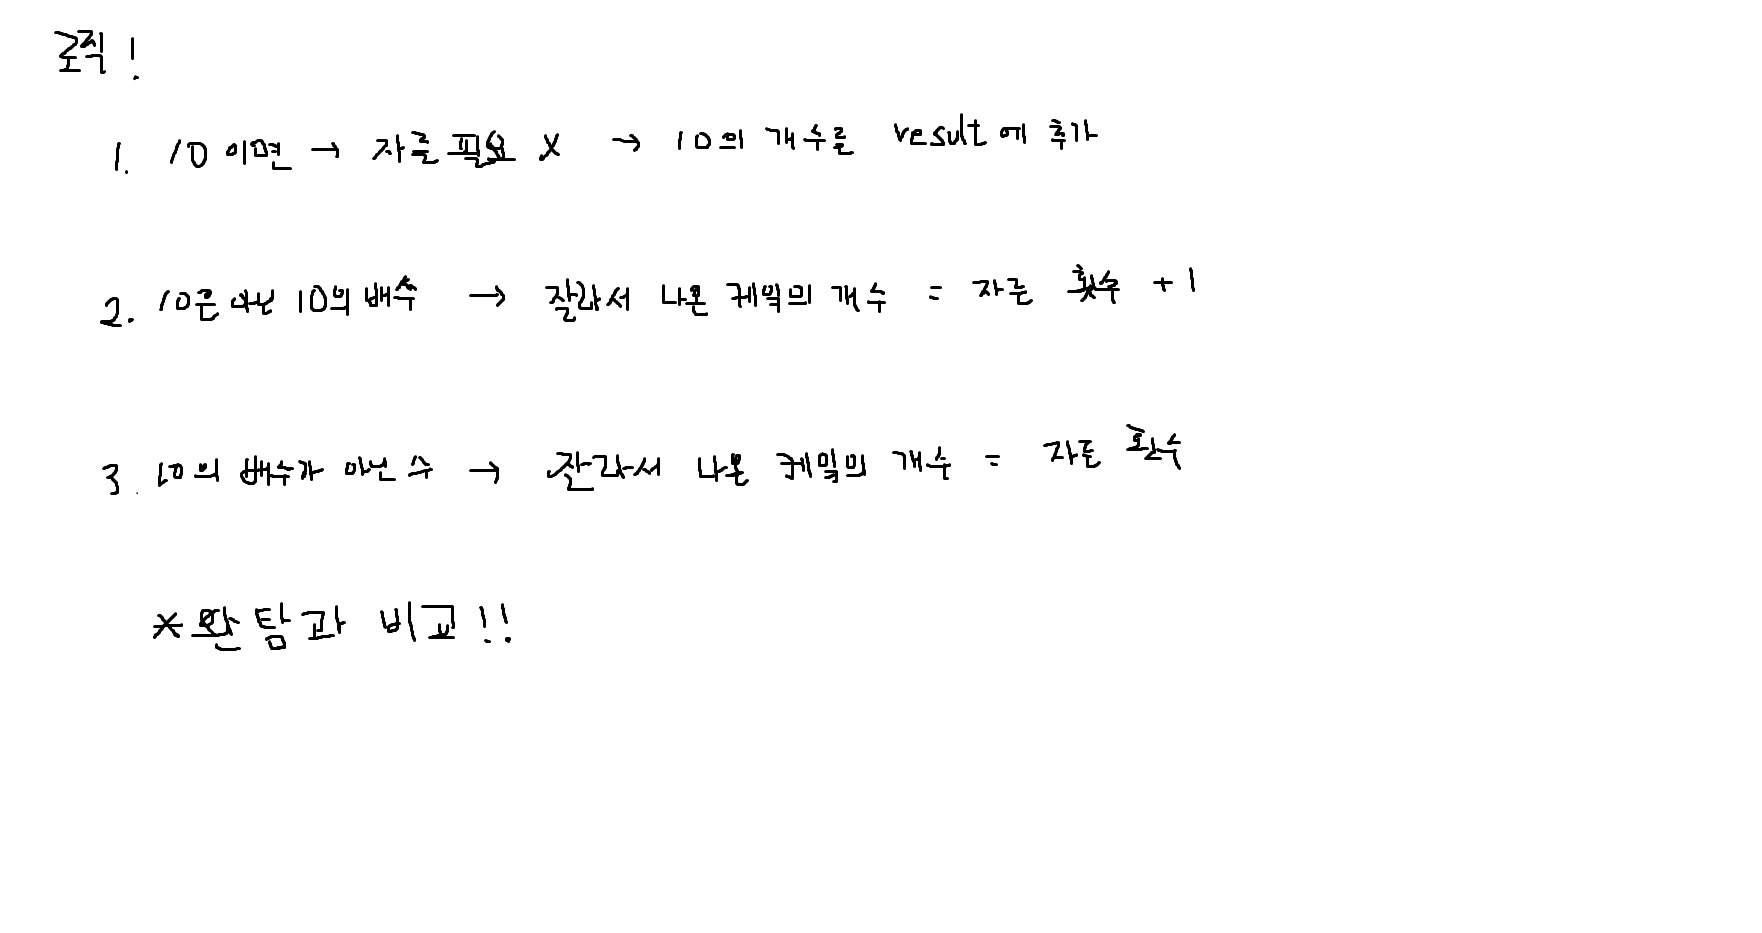 로직!
1. 10이면 → 자를 필요 X → 10의 개수를 result에 추가
2. 10은 아닌 10의 배수 → 잘라서 나온 케잌의 개수 = 자른 횟수 + 1
3. 10의 배수가 아닌 수 → 잘라서 나온 케잌의 개수 = 자른 횟수
*완탐과 비교!!